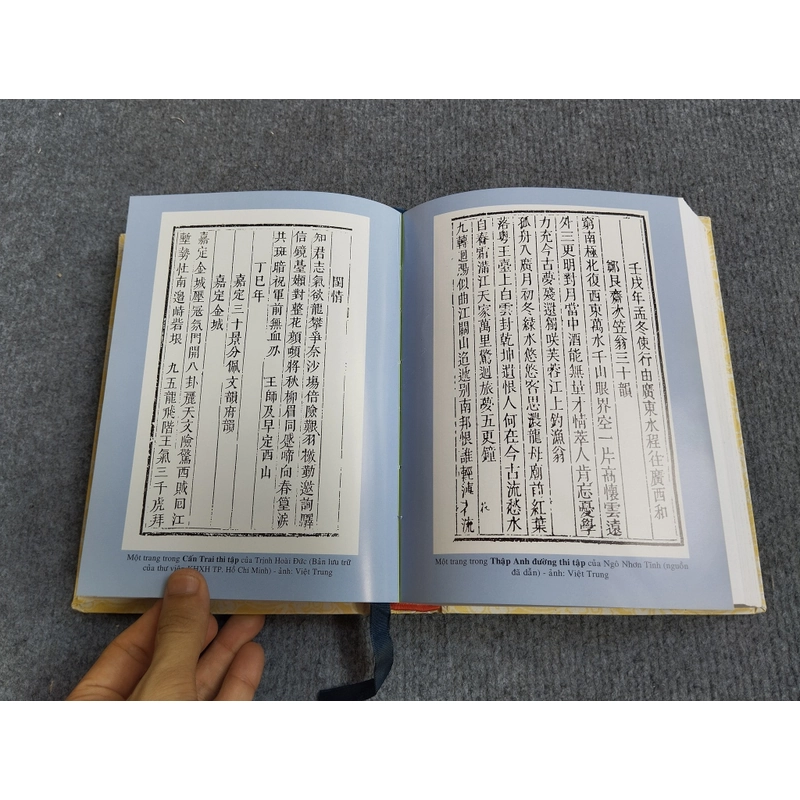 閨情
知君志氣欲龍攀爭奈沙場倍險艱羽檄勤邀詢驛
信鏡臺嬾對整花顏頓將秋柳眉同蹙啼向春篁淚
共斑暗祝軍前無血刃 王師及早定西山
丁巳年
嘉定三十景分佩文韻府韻
嘉定金城
嘉定金城壓冠氛門開八卦麗天文險驚西賊囘江
塹勢壯南邉峙砦垠 九五龍飛階王氣三千虎拜
Một trang trong Cấn Trai thi tập của Trịnh Hoài Đức (Bản lưu trữ
của thư viện KHXH TP. Hồ Chí Minh) - ảnh: Việt Trung
壬戌年孟冬使行由廣東水程往廣西和
鄭艮齋次笠翁三十韻
窮南極北復西東萬水千山眼界空一片高懷雲遠
外三更明對月當中酒能無量才情萃人肯忘憂學
力充今古夢殘還獨咲芙蓉江上釣漁翁
孤舟八廣月初冬綠水悠悠客思濃龍母廟前紅葉
落粵王臺上白雲封乾坤遺恨人何在今古流愁水
自舂點滿江天家萬里驚迴旅夢五更鐘
九轉迴腸似曲江關山迢遞別南邦恨誰輕才流
Một trang trong Thập Anh đường thi tập của Ngô Nhơn Tĩnh (nguồn
đã dẫn) - ảnh: Việt Trung